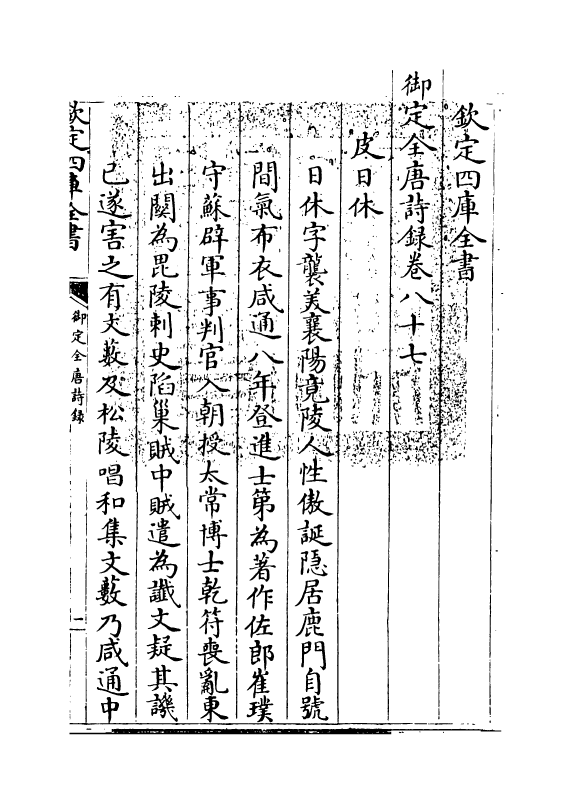 欽定四庫全書
御定全唐詩録卷八十七
皮日休
日休字襲美襄陽竟陵人性傲誕隱居鹿門自號
間氣布衣咸通八年登進士第為著作佐郎崔璞
守蘇辟軍事判官入朝授太常博士乾符喪亂東
出關為毘陵刺史陷巢賊中賊遣為讖文疑其譏
己遂害之有文藪及松陵唱和集文藪乃咸通中
欽定四庫全書
御定全唐詩録
一